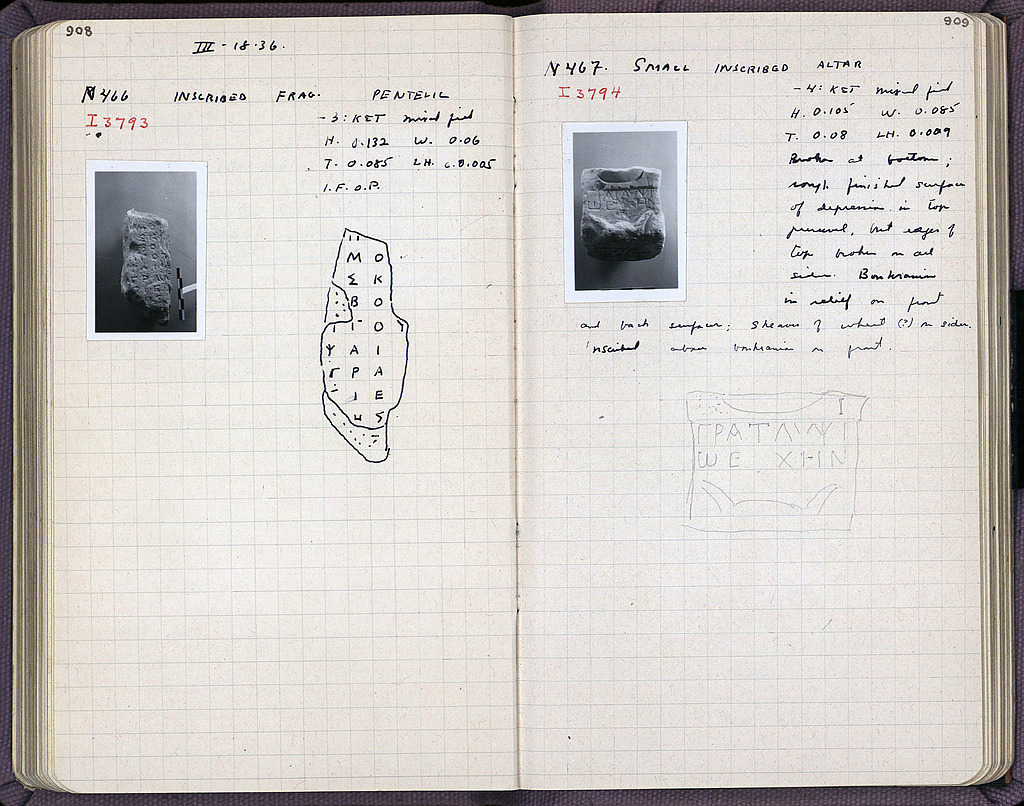 908
III - 18.36.
N 466 INSCRIBED FRAG. PENTELIC
I 3793
- 3: KET mixed fill
H. 0.132 W. 0.06
T. 0.085 LH. c. 0.005
I.F.O.P.
Μ Ο
Σ Κ
Β Ο
Ι Ο
Ψ Α Ι
Γ Ρ Α
Ι Ε
Η Σ
909
N 467. SMALL INSCRIBED ALTAR
I 3794
- 4: KET mixed fill
H. 0.105 W. 0.085
T. 0.08 LH. 0.009
Broken at bottom;
rough finished surface
of depression in top
preserved, but edges of
top broken on all
sides. Boukrania
in relief on front
and back surfaces; sheaves of wheat (?) on sides.
Inscribed above boukrania on front.
Ι
ΓΡΑΤ
ΩΕ ΧΗΝ